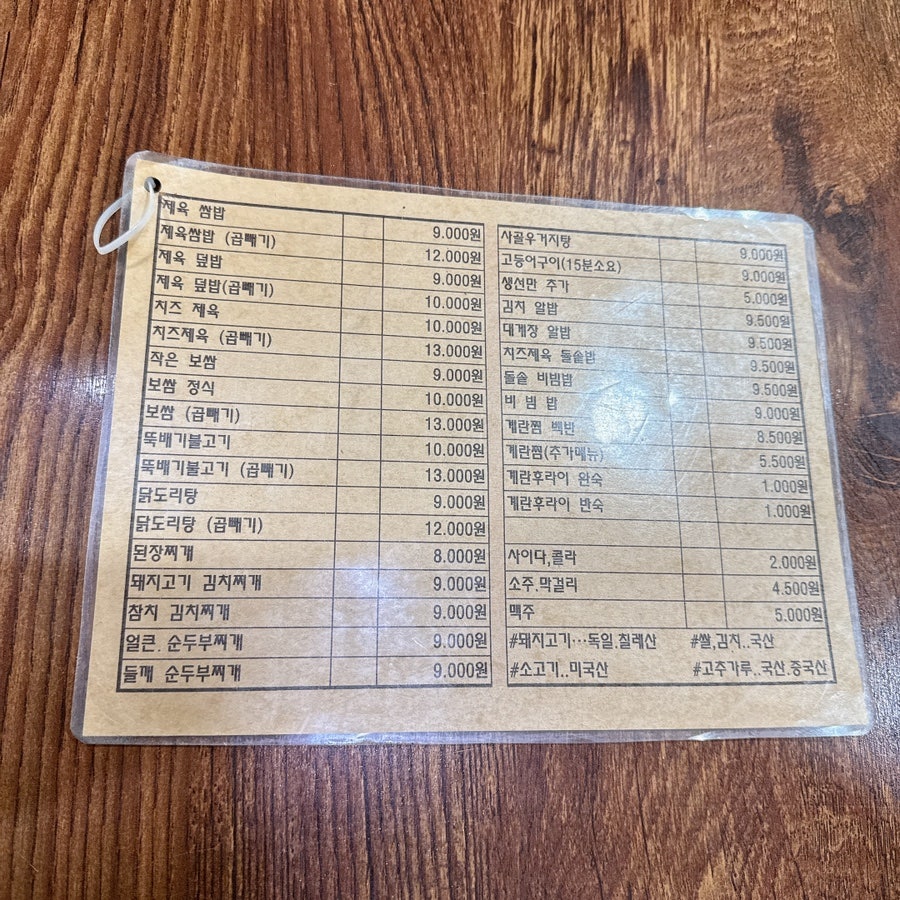 제육 쌈밥 9.000원
제육쌈밥 (곱빼기) 12.000원
제육 덮밥 9.000원
제육 덮밥(곱빼기) 10.000원
치즈 제육 10.000원
치즈제육 (곱빼기) 13.000원
작은 보쌈 9.000원
보쌈 정식 10.000원
보쌈 (곱빼기) 13.000원
뚝배기불고기 10.000원
뚝배기불고기 (곱빼기) 13.000원
닭도리탕 9.000원
닭도리탕 (곱빼기) 12.000원
된장찌개 8.000원
돼지고기 김치찌개 9.000원
참치 김치찌개 9.000원
얼큰. 순두부찌개 9.000원
들깨 순두부찌개 9.000원
사골우거지탕 9.000원
고등어구이(15분소요) 9.000원
생선만 추가 5.000원
김치 알밥 9.500원
대게장 알밥 9.500원
치즈제육 돌솥밥 9.500원
돌솥 비빔밥 9.500원
비 빔 밥 9.000원
계란찜 백반 8.500원
계란찜(추가메뉴) 5.500원
계란후라이 완숙 1.000원
계란후라이 반숙 1.000원
사이다,콜라 2.000원
소주.막걸리 4.500원
맥주 5.000원
#돼지고기…독일.칠레산 #쌀,김치..국산
#소고기..미국산 #고추가루..국산.중국산